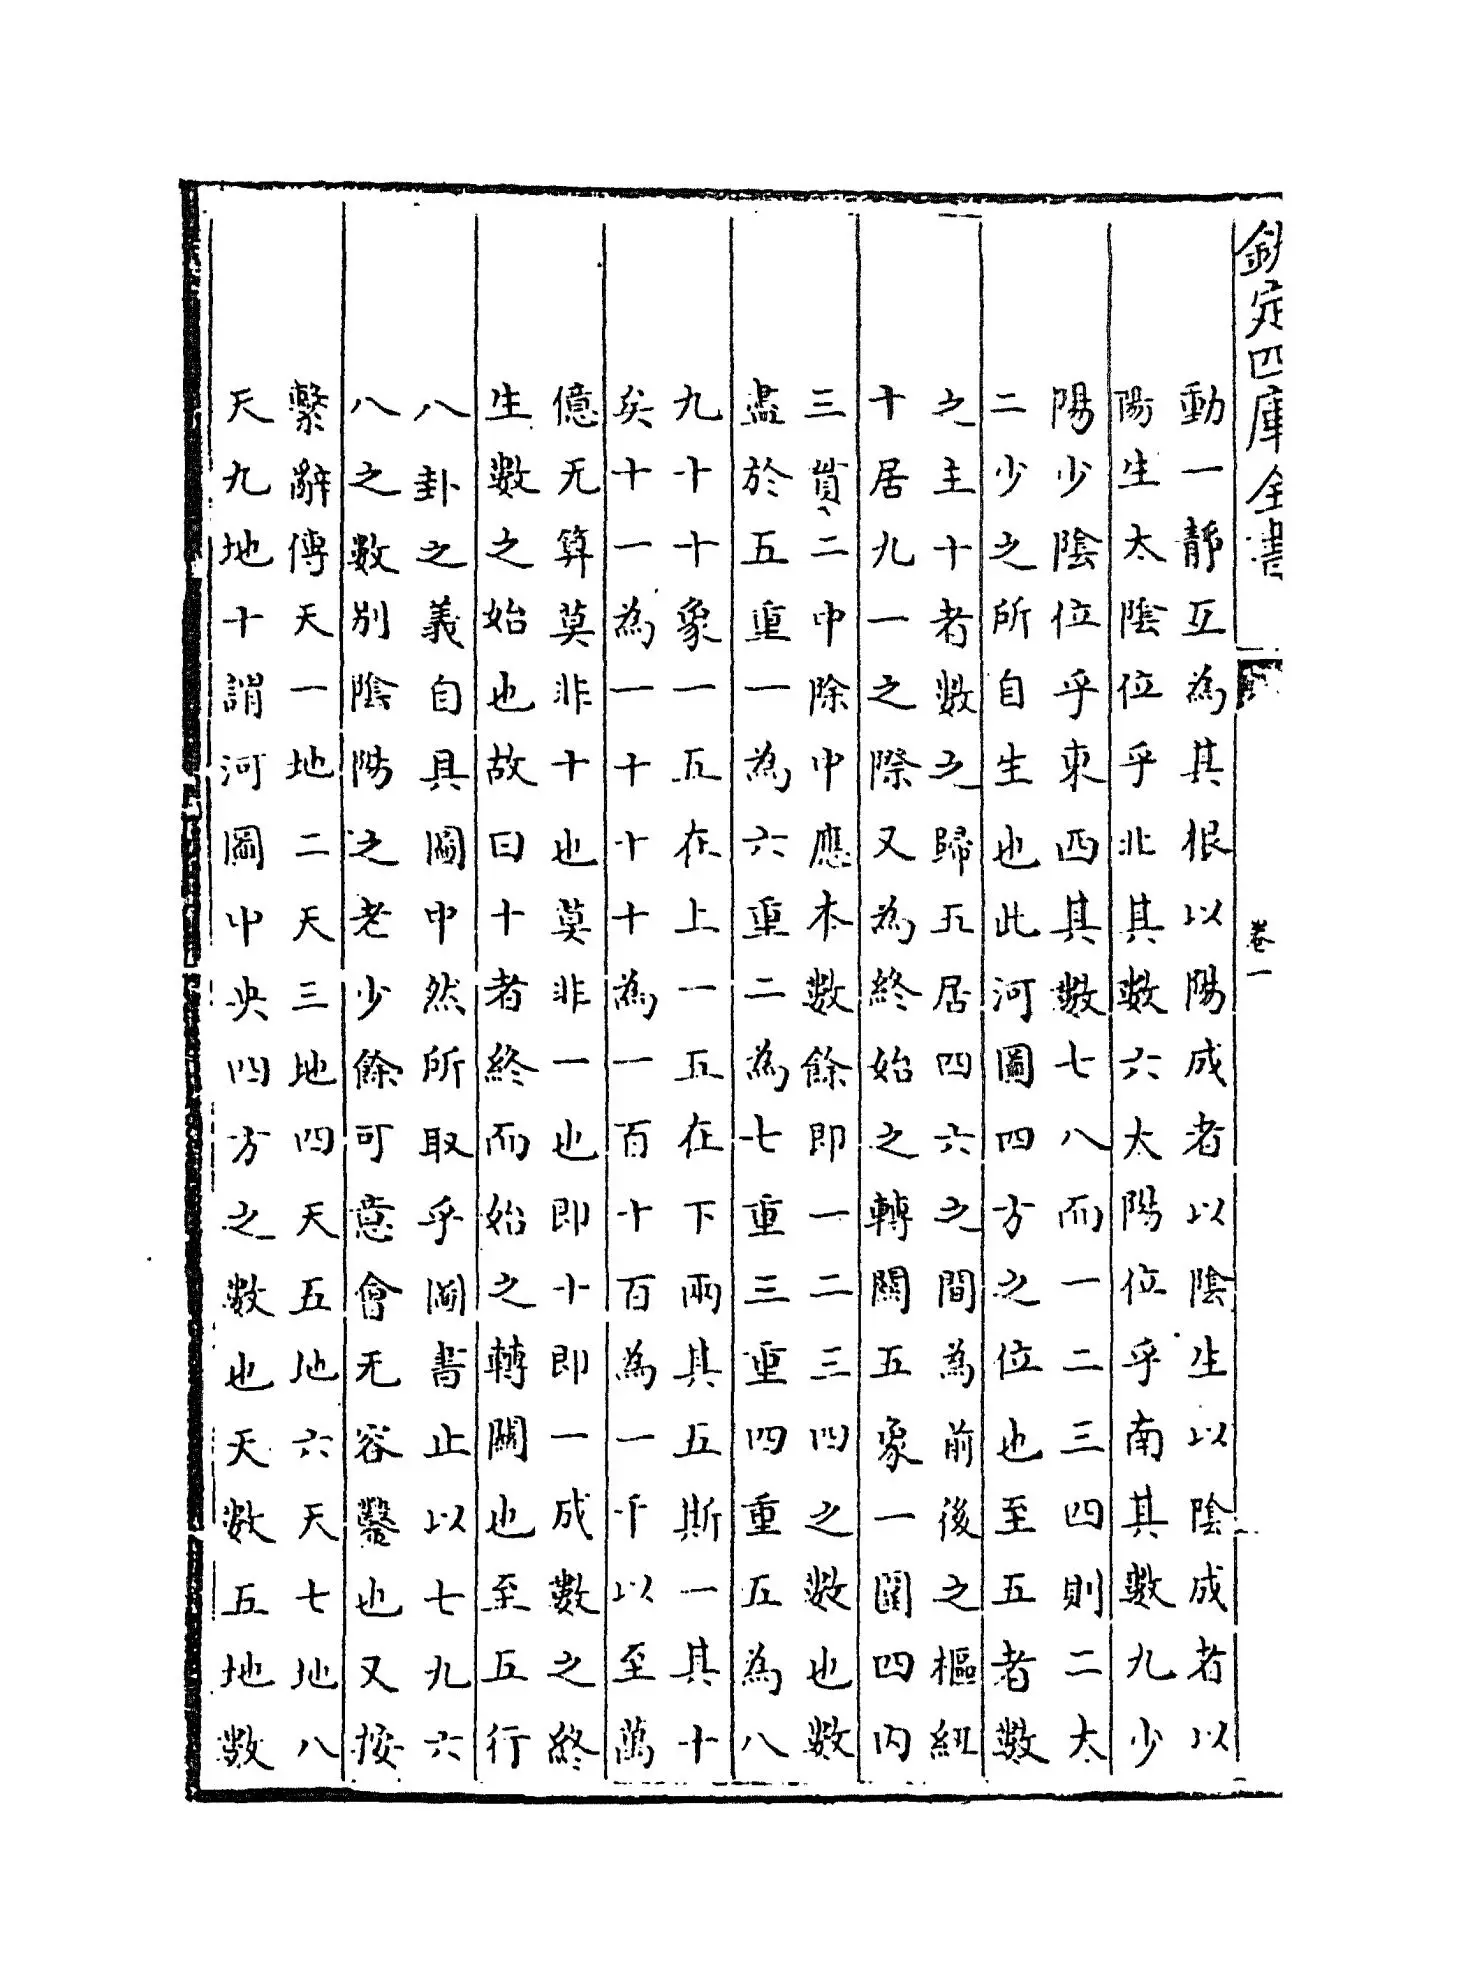 欽定四庫全書
卷一
動一靜互為其根以陽成者以陰生以陰成者以
陽生太陰位乎北其數六太陽位乎南其數九少
陽少陰位乎東西其數七八而一二三四則二太
二少之所自生也此河圖四方之位也至五者數
之主十者數之歸五居四六之間為前後之樞紐
十居九一之際又為終始之轉關五象一圈四內
三貫二中除中應本數餘即一二三四之數也數
盡於五重一為六重二為七重三重四重五為八
九十十象一五在上一五在下兩其五斯一其十
矣十一為一十十十為一百十百為一千以至萬
億无算莫非十也莫非一也即十即一成數之終
生數之始也故曰十者終而始之轉關也至五行
八卦之義自具圖中然所取乎圖書止以七九六
八之數別陰陽之老少餘可意會无容鑿也又按
繫辭傳天一地二天三地四天五地六天七地八
天九地十謂河圖中央四方之數也天數五地數